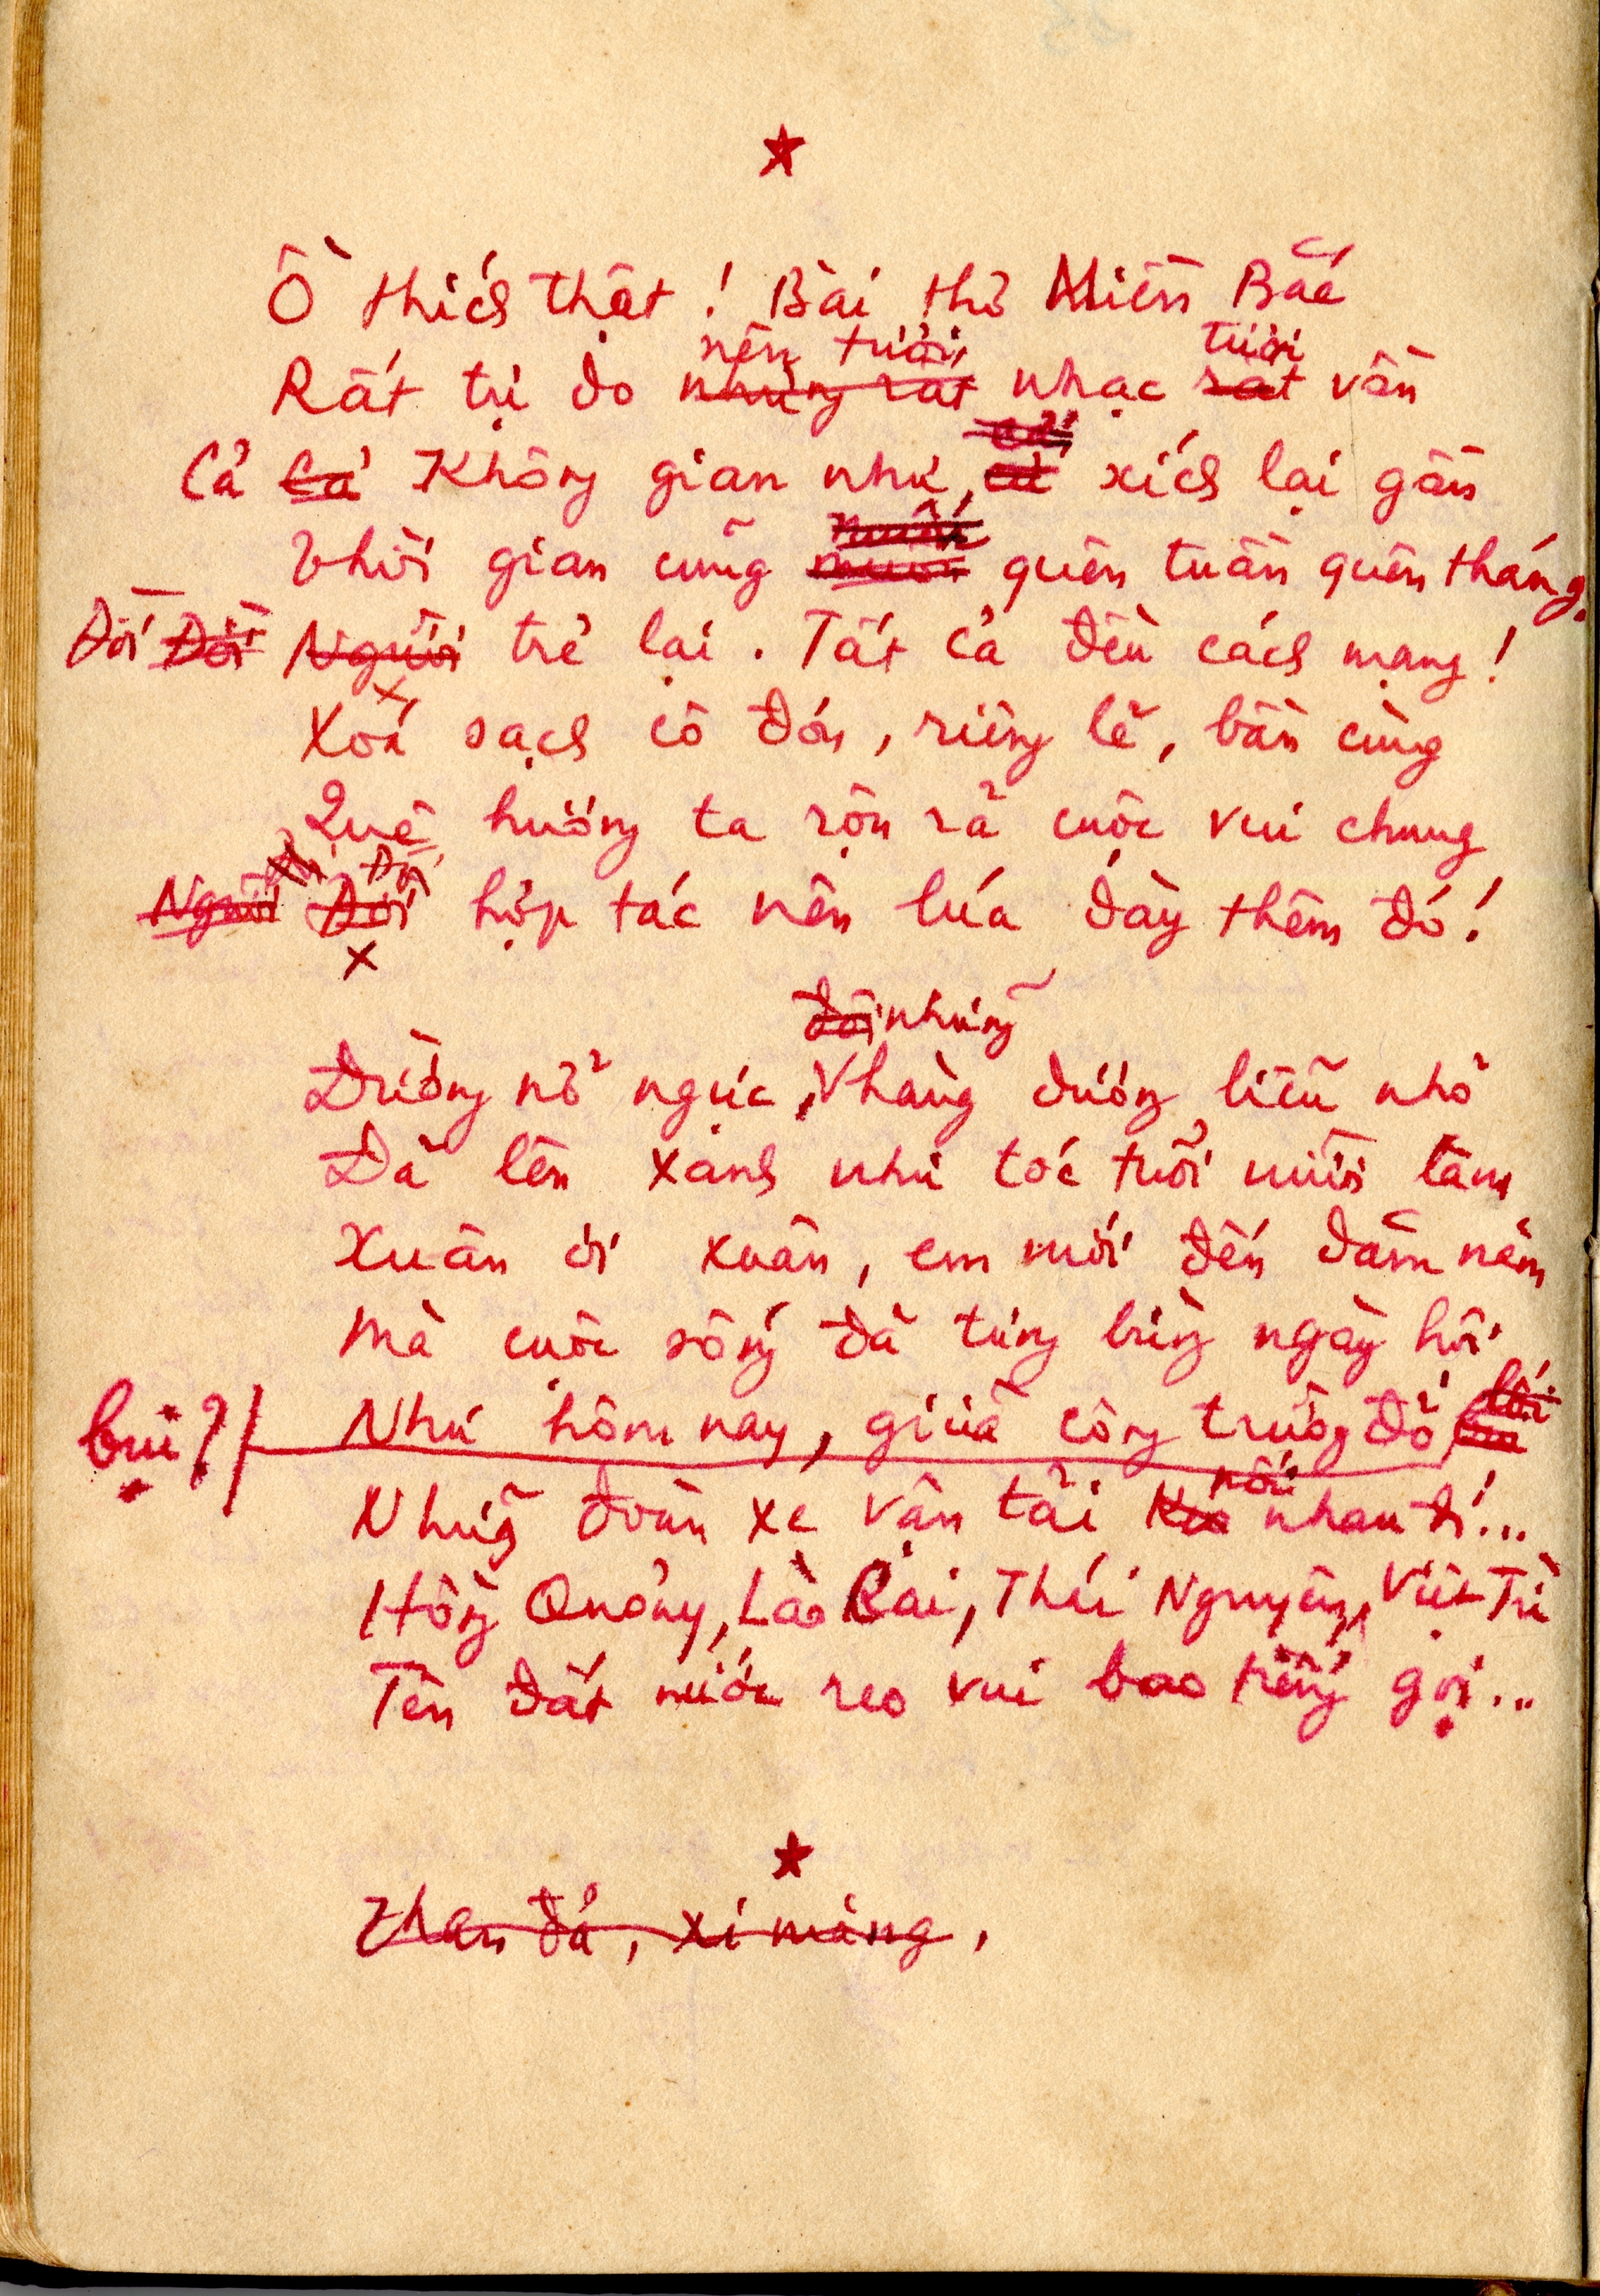 Ồ thích thật! Bài thơ Miền Bắc
nên tươi, tươi
Rất tự do những rất nhạc rất vần
Cả Cả Không gian như, xích lại gần
Thời gian cũng quên tuần quên tháng.
Đời Đời Người trẻ lại. Tất cả đều cách mạng!
Xoá sạch cô đơn, riêng lẽ, bần cùng
Quê hương ta rộn rã cuộc vui chung
Đời
Người Đời hợp tác nên lúa dày thêm đó!
đôi những
Đường nở ngực, hàng dương liễu nhỏ
Đã lên xanh như tóc tuổi mười lăm
Xuân ơi xuân, em mới đến dăm năm
Mà cuộc sống đã tưng bừng ngày hội
lối
bụi? Như hôm nay, giữa công trường đỏ
nối
Những đoàn xe vận tải kéo nhau đi...
Hồng Quảng, Lào Cai, Thái Nguyên, Việt Trì
Tên đất nước reo vui bao tiếng gọi...
Than đá, xi măng,